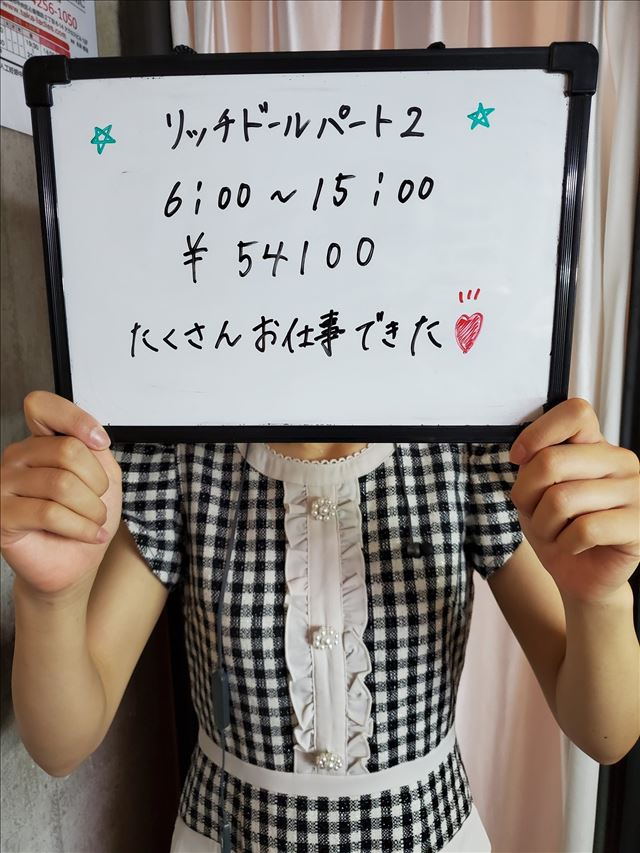 4256-1050
リッチドールパート2
6:00～15:00
¥54100
たくさんお仕事できた